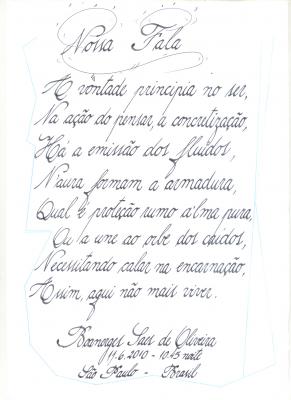 Nossa Fala
A vontade principia no ser,
Na ação do pensar, a concretização,
Há a emissão dos fluidos,
N'aura formam a armadura,
Qual é proteção rumo a'lma pura,
Ou a une ao orbe dos caídos,
Necessitando calar na encarnação,
Assim, aqui não mais viver.
de Oliveira
11.6.2010 - 10:45 noite
São Paulo - Brasil